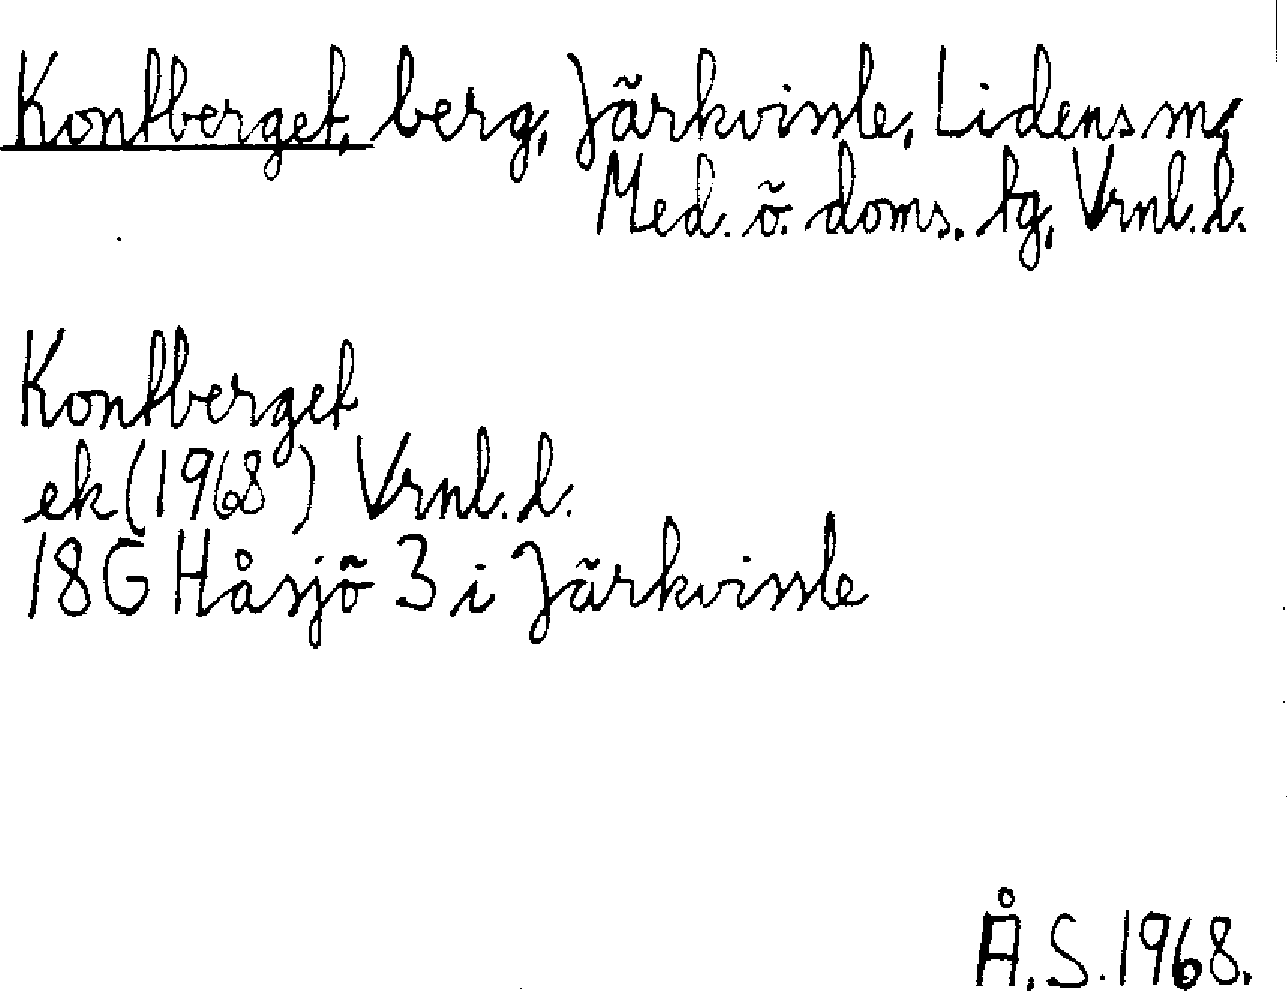 Kontberget, berg, Järkvissle, Lidens sn,
Med. ö. doms. tg, Vrnl. l.
Kontberget
ek (1968) Vrnl. l.
18G Håsjö 3 i Järkvissle
Å. S. 1968.